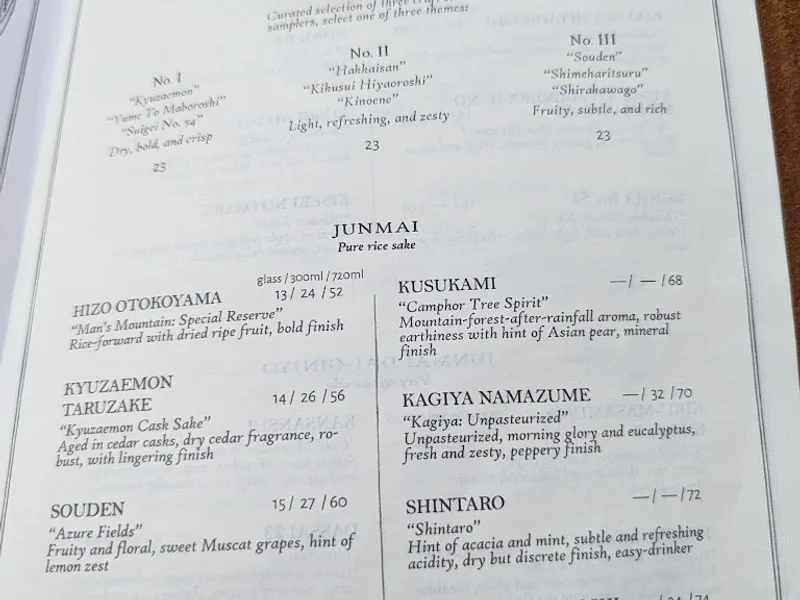 Curated selection of three
samplers, select one of three themes:
No. I
"Kyuzaemon"
"Yume To Maboroshi"
"Suigei No. 54"
Dry, bold, and crisp
23
No. II
"Hakkaisan"
"Kikusui Hiyaoroshi"
"Kinoene"
Light, refreshing, and zesty
23
No. III
"Souden"
"Shimeharitsuru"
"Shirakawago"
Fruity, subtle, and rich
23
JUNMAI
Pure rice sake
glass / 300ml / 720ml
HIZO OTOKOYAMA 13 / 24 / 52
"Man's Mountain: Special Reserve"
Rice-forward with dried ripe fruit, bold finish
KYUZAEMON
TARUZAKE 14 / 26 / 56
"Kyuzaemon Cask Sake"
Aged in cedar casks, dry cedar fragrance, ro-
bust, with lingering finish
SOUDEN 15 / 27 / 60
"Azure Fields"
Fruity and floral, sweet Muscat grapes, hint of
lemon zest
KUSUKAMI — / — / 68
"Camphor Tree Spirit"
Mountain-forest-after-rainfall aroma, robust
earthiness with hint of Asian pear, mineral
finish
KAGIYA NAMAZUME — / 32 / 70
"Kagiya: Unpasteurized"
Unpasteurized, morning glory and eucalyptus,
fresh and zesty, peppery finish
SHINTARO — / — / 72
"Shintaro"
Hint of acacia and mint, subtle and refreshing
acidity, dry but discrete finish, easy-drinker